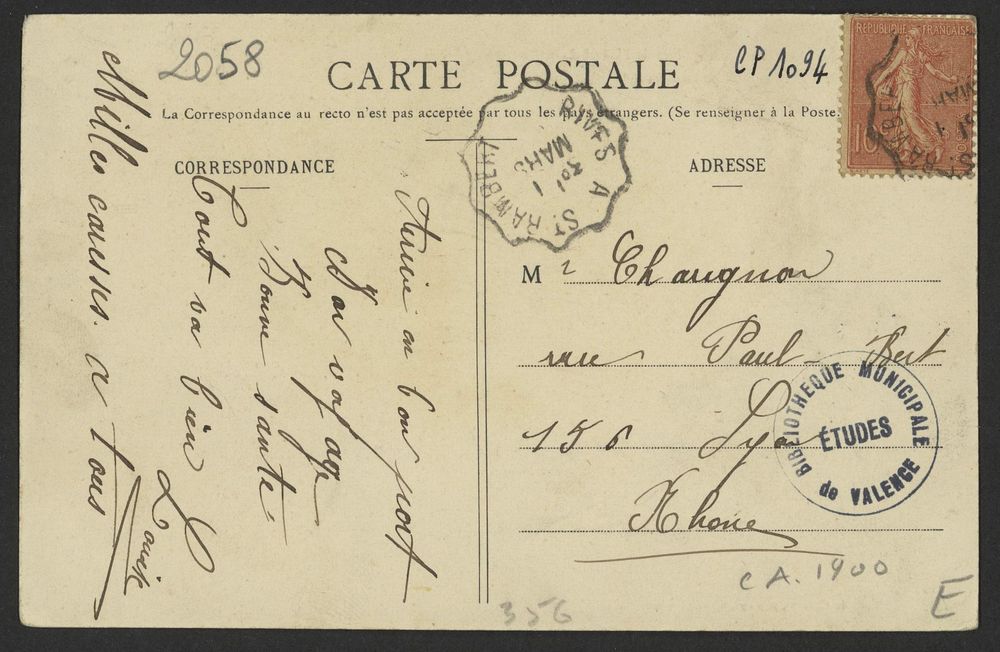 2058
CARTE POSTALE
CP 1094
La Correspondance au recto n'est pas acceptée par tous les pays étrangers. (Se renseigner à la Poste.
CORRESPONDANCE
ADRESSE
REPUBLIQUE FRANÇAISE
10
A ST RAMBERT
1
MARS
Arrivé en bon port
Bon voyage
Bonne santé
Tout va bien
Louise
Milles caresses a tous
M Chavignon
rue Paul-Bert
156 Lyon
Rhone
BIBLIOTHEQUE MUNICIPALE
ÉTUDES
de VALENCE
CA. 1900
356
E